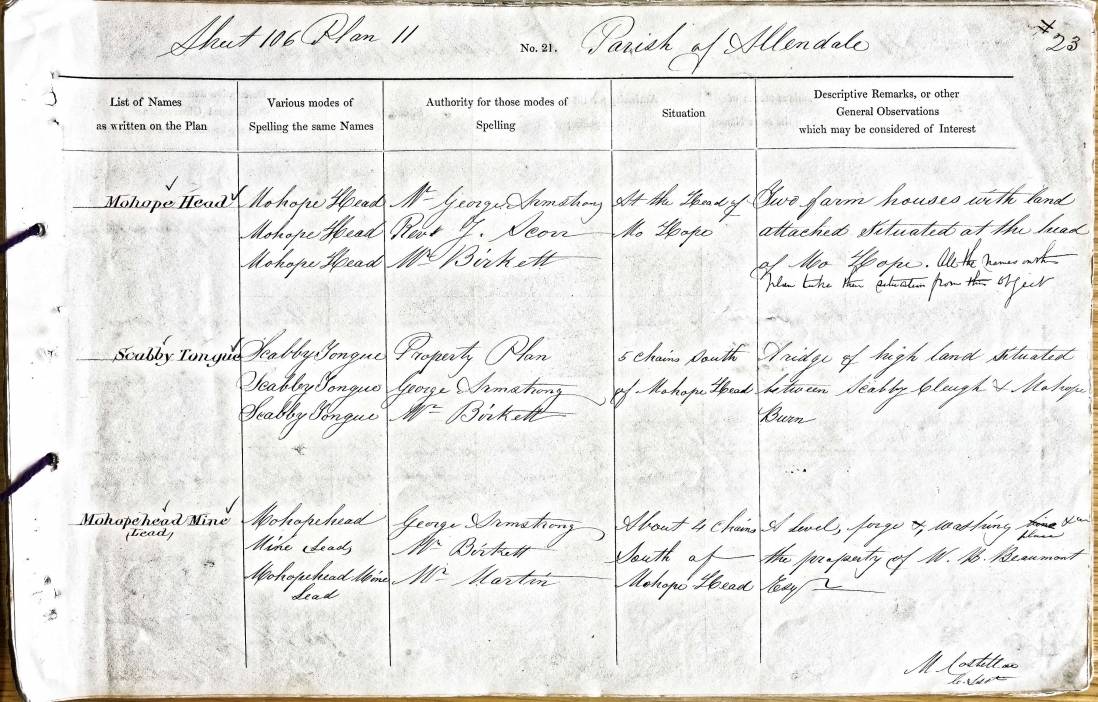 Sheet 106 Plan 11
No. 21.
Parish of Allendale
23
List of Names
as written on the Plan
Various modes of
Spelling the same Names
Authority for those modes of
Spelling
Situation
Descriptive Remarks, or other
General Observations
which may be considered of Interest
Mohope Head
Mohope Head
Mohope Head
Mohope Head
Mr. George Armstrong
Revd. J. Scott
Mr. Birkett
At the Head of
Mo Hope
Two farm houses with land
attached situated at the head
of Mo Hope. All the names on this
plan take their situation from this object
Scabby Tongue
Scabby Tongue
Scabby Tongue
Scabby Tongue
Property Plan
George Armstrong
Mr. Birkett
5 Chains South
of Mohope Head
A ridge of high land situated
between Scabby Cleugh & Mohope
Burn
Mohopehead Mine
(Lead)
Mohopehead
Mine (Lead)
Mohopehead Mine
Lead
George Armstrong
Mr. Birkett
Mr. Martin
About 4 Chains
South of
Mohope Head
A level, forge & washing
place
the property of W. B. Beaumont
Esqr